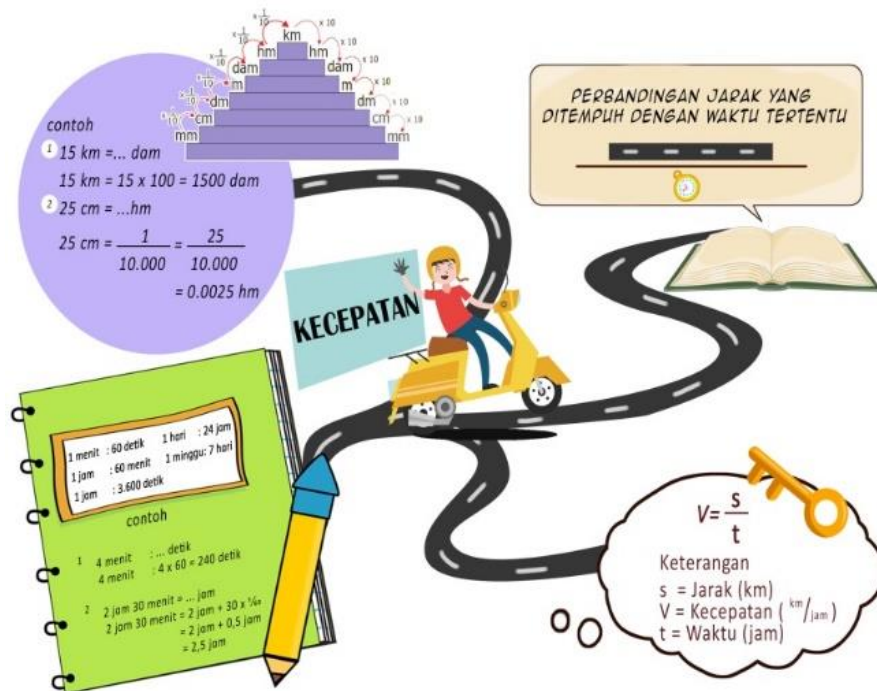 km
hm
dam
m
dm
cm
mm
hm
dam
m
dm
cm
mm
x 1/10
x 1/10
x 1/10
x 1/10
x 1/10
x 1/10
x 10
x 10
x 10
x 10
x 10
x 10
contoh
1 15 km =... dam
15 km = 15 x 100 = 1500 dam
2 25 cm = ...hm
25 cm = 1/10.000 = 25/10.000
= 0.0025 hm
PERBANDINGAN JARAK YANG
DITEMPUH DENGAN WAKTU TERTENTU
KECEPATAN
1 menit : 60 detik 1 hari : 24 jam
1 jam : 60 menit 1 minggu: 7 hari
1 jam : 3.600 detik
contoh
1 4 menit : ... detik
4 menit : 4 x 60 = 240 detik
2 2 jam 30 menit = ... jam
2 jam 30 menit = 2 jam + 30 x 1/60
= 2 jam + 0,5 jam
= 2,5 jam
V= s/t
Keterangan
s = Jarak (km)
V = Kecepatan ( km/jam )
t = Waktu (jam)